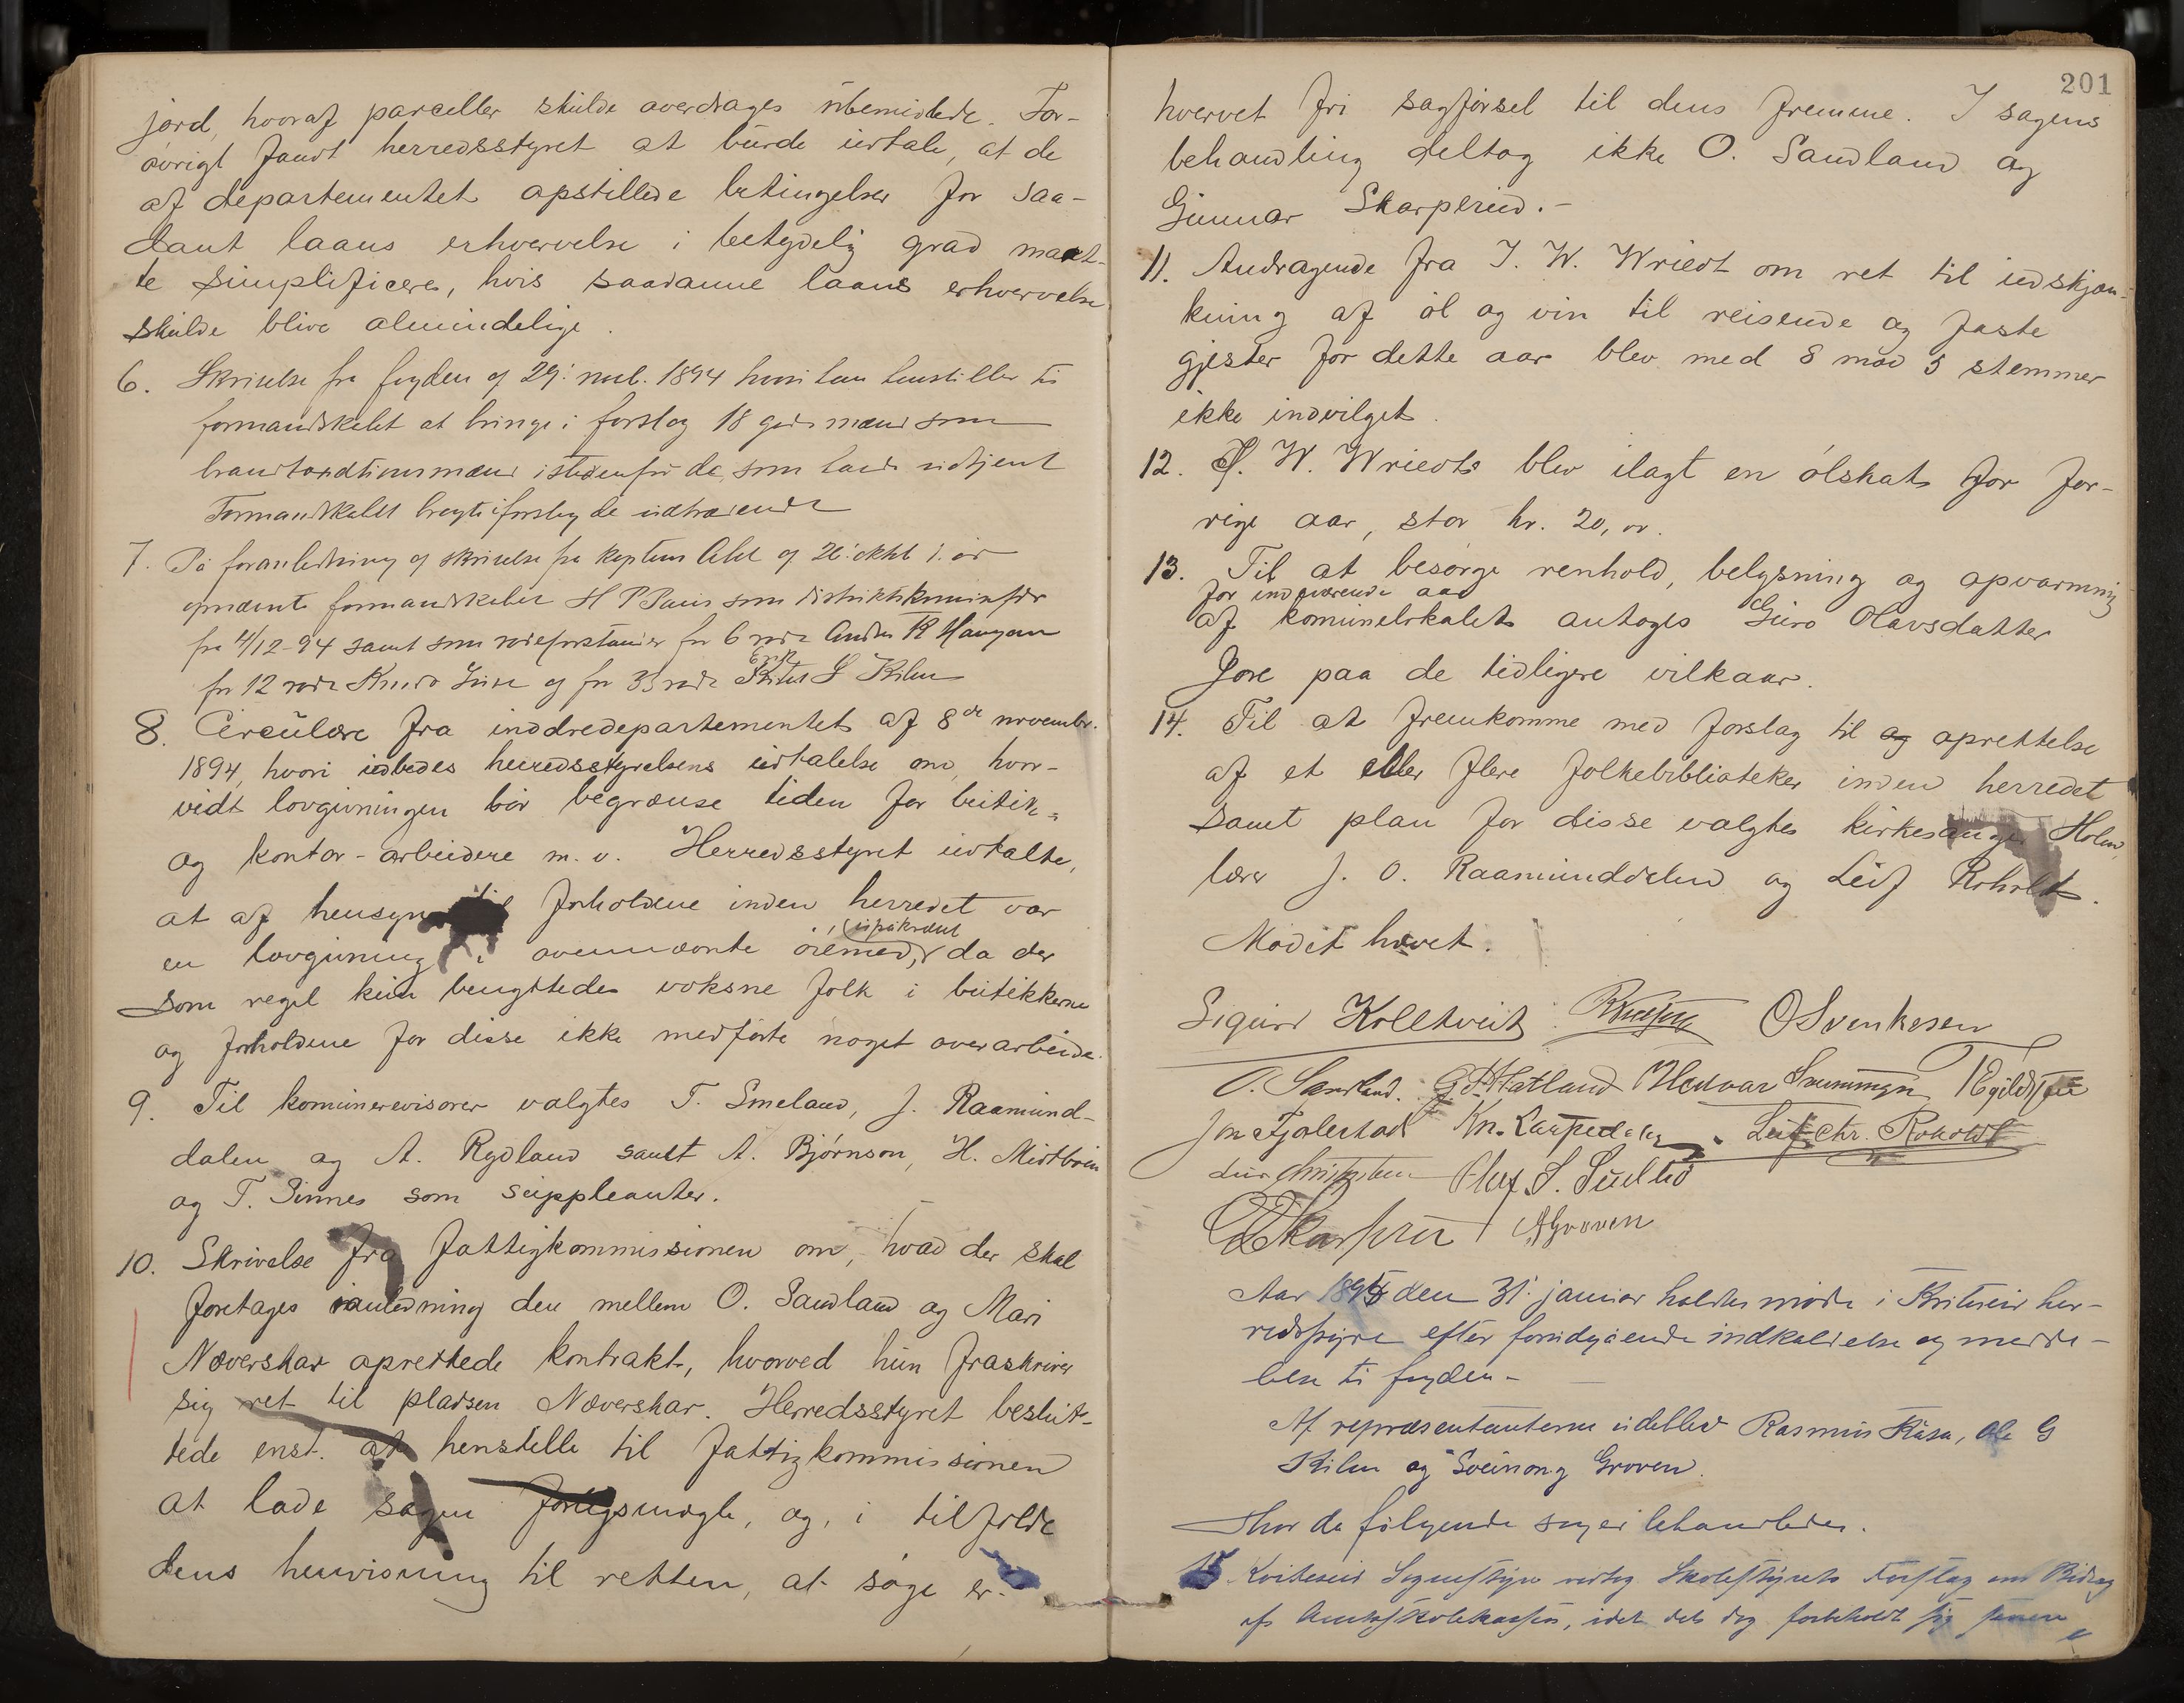 jord, hvoraf parceller skulde overdrages ubemidlede. For-
øvrigt fandt herredsstyret at burde udtale, at de
af departementet opstillede betingelser for saa-
dant laans erhvervelse i betydelig grad maat-
te simplificeres, hvis saadanne laans erhvervelse
skulde blive almindelige.
6. Skrivelse fra fogden af 29. novb. 1894 hvori han henstiller til
formandskabet at bringe i forslag 18 gode mænd som
brandtaxationsmænd istedenfor de, som havde udtjent
Formandskabet bragte i forslag de udtrædende
7. På foranledning af skrivelse fra kaptein Abel af 26. oktbr f. år
opnævnte formandskabet H P Paus som distriktskommissær
fra 4/12-94 samt som rodeforstander for 6 rode Anders K Haugan
for 12 rode Knud og for 33 rode Eirik S Kilen
8. Circulære fra indredepartementet af 8de novembr.
1894, hvori udbedes herredsstyrelsens udtalelse om, hvor-
vidt lovgivningen bør begrænse tiden for butik-
og kontor-arbeidere m. v. Herredsstyret udtalte,
at af hensyn til forholdene inden herredet var
en lovgivning i ovennævnte øiemed, upåkrævet da der
som regel kun benyttedes voksne folk i butikkerne
og forholdene for disse ikke medførte noget overarbeide.
9. Til komunerevisorer valgtes T. Smeland, J. Raamund-
dalen og A. Rydland samt A. Bjørnson, H. Midtbøen
og T. Sinnes som suppleanter.
10. Skrivelse fra fattigkommissionen om, hvad der skal
foretages i anledning den mellem O. Sandland og Mari
Næverskar oprettede kontrakt, hvorved hun fraskriver
sig ret til pladsen Næverskar. Herredsstyret beslut-
tede enst. at henstille til fattigkommissionen
at lade sagen forligsmægle, og, i tilfælde
dens henvisning til retten, at søge er-
201
hvervet fri sagførsel til dens fremme. I sagens
behandling deltog ikke O. Sandland og
Gunnar Skarpreid.-
11. Andragende fra J. W. Wriedt om ret til udskjæn-
kning af øl og vin til reisende og faste
gjester for dette aar blev med 8 mod 5 stemmer
ikke indvilget
12. J. W. Wriedts blev ilagt en ølskat for for-
rige aar, stor kr. 20,00.
13. Til at besørge renhold, belysning og opvarmning
for indeværende aar
af komunelokalet antoges Guro Olavsdatter
Jore paa de tidligere vilkaar.
14. Til at fremkomme med forslag til og oprettelse
af et eller flere folkebibliotheker inden herredet
samt plan for disse valgtes kirkesanger Holm,
lærer J. O. Raamunddalen og Leif Roholdt.
Mødet hævet.
Sigurd Kolltveit OSvenkesen
O. Sandland. G. H. Hatland Halvor Svenungsen
Jon Fjalestad Kn. Leif Chr. Roholdt
Olaf S.
GSkarpreid AGroven
Aar 1895 den 31. januar holdtes møde i Kviteseid her-
redsstyre efter forudgående indkaldelse og medde-
lelse til fogden-
Af repræsentanterne udeblev Rasmus Råsa, Ole G
Kilen og Sveinong Groven.
Hvor da følgende sager behandledes.
15 Kviteseid Sognestyre vedtog Skolestyrets Forslag om Bidrag
af Amtsskolekassen, idet det dog forbeholdt sig senere